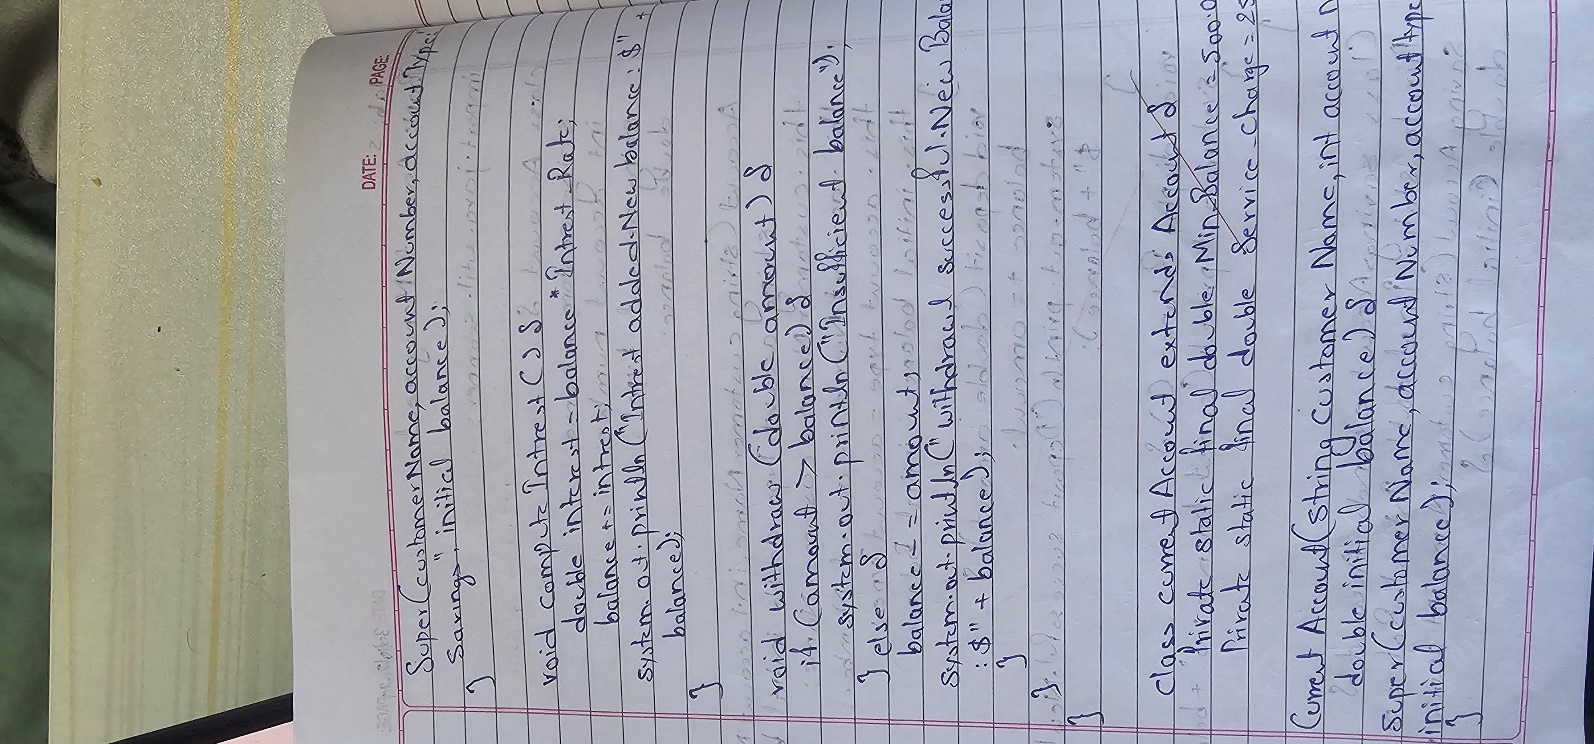 DATE: PAGE:
Super(customerName, account Number, account Type:
Savings", initial balance);
}
void compute Intrest () {
double interest = balance * Intrest_Rate;
balance += intrest;
system.out.println("Intrest added.New balance: $" +
balance);
}
void withdraw (double amount) {
if (amount > balance) {
system.out.println("Insufficient balance");
} else {
balance -= amount;
system.out.println("withdrawl successful.New Bala
: $" + balance);
}
}
}
Class current Account extends Account {
Private static final double Min_Balance = 500.0
Private static final double Service_charge = 25
Current Account (string customer Name, int account N
double initial balance) {
Super (customer Name, account Number, account type
initial balance);
}